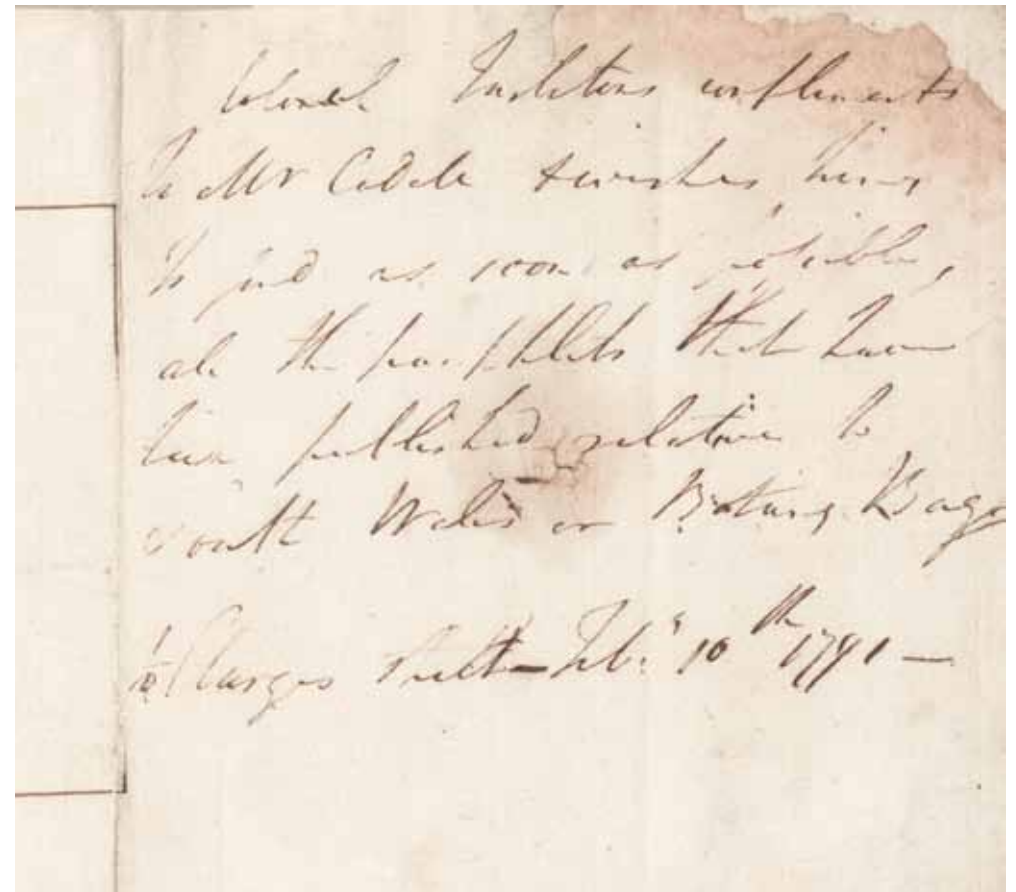 Colonel Tarletons compliments
to Mr Cadell & wishes him
to send as soon as possible,
all the pamphlets that have
been published relative to
South Wales or Botany Bay
Clarges Street — Feb.y 10th 1791 —